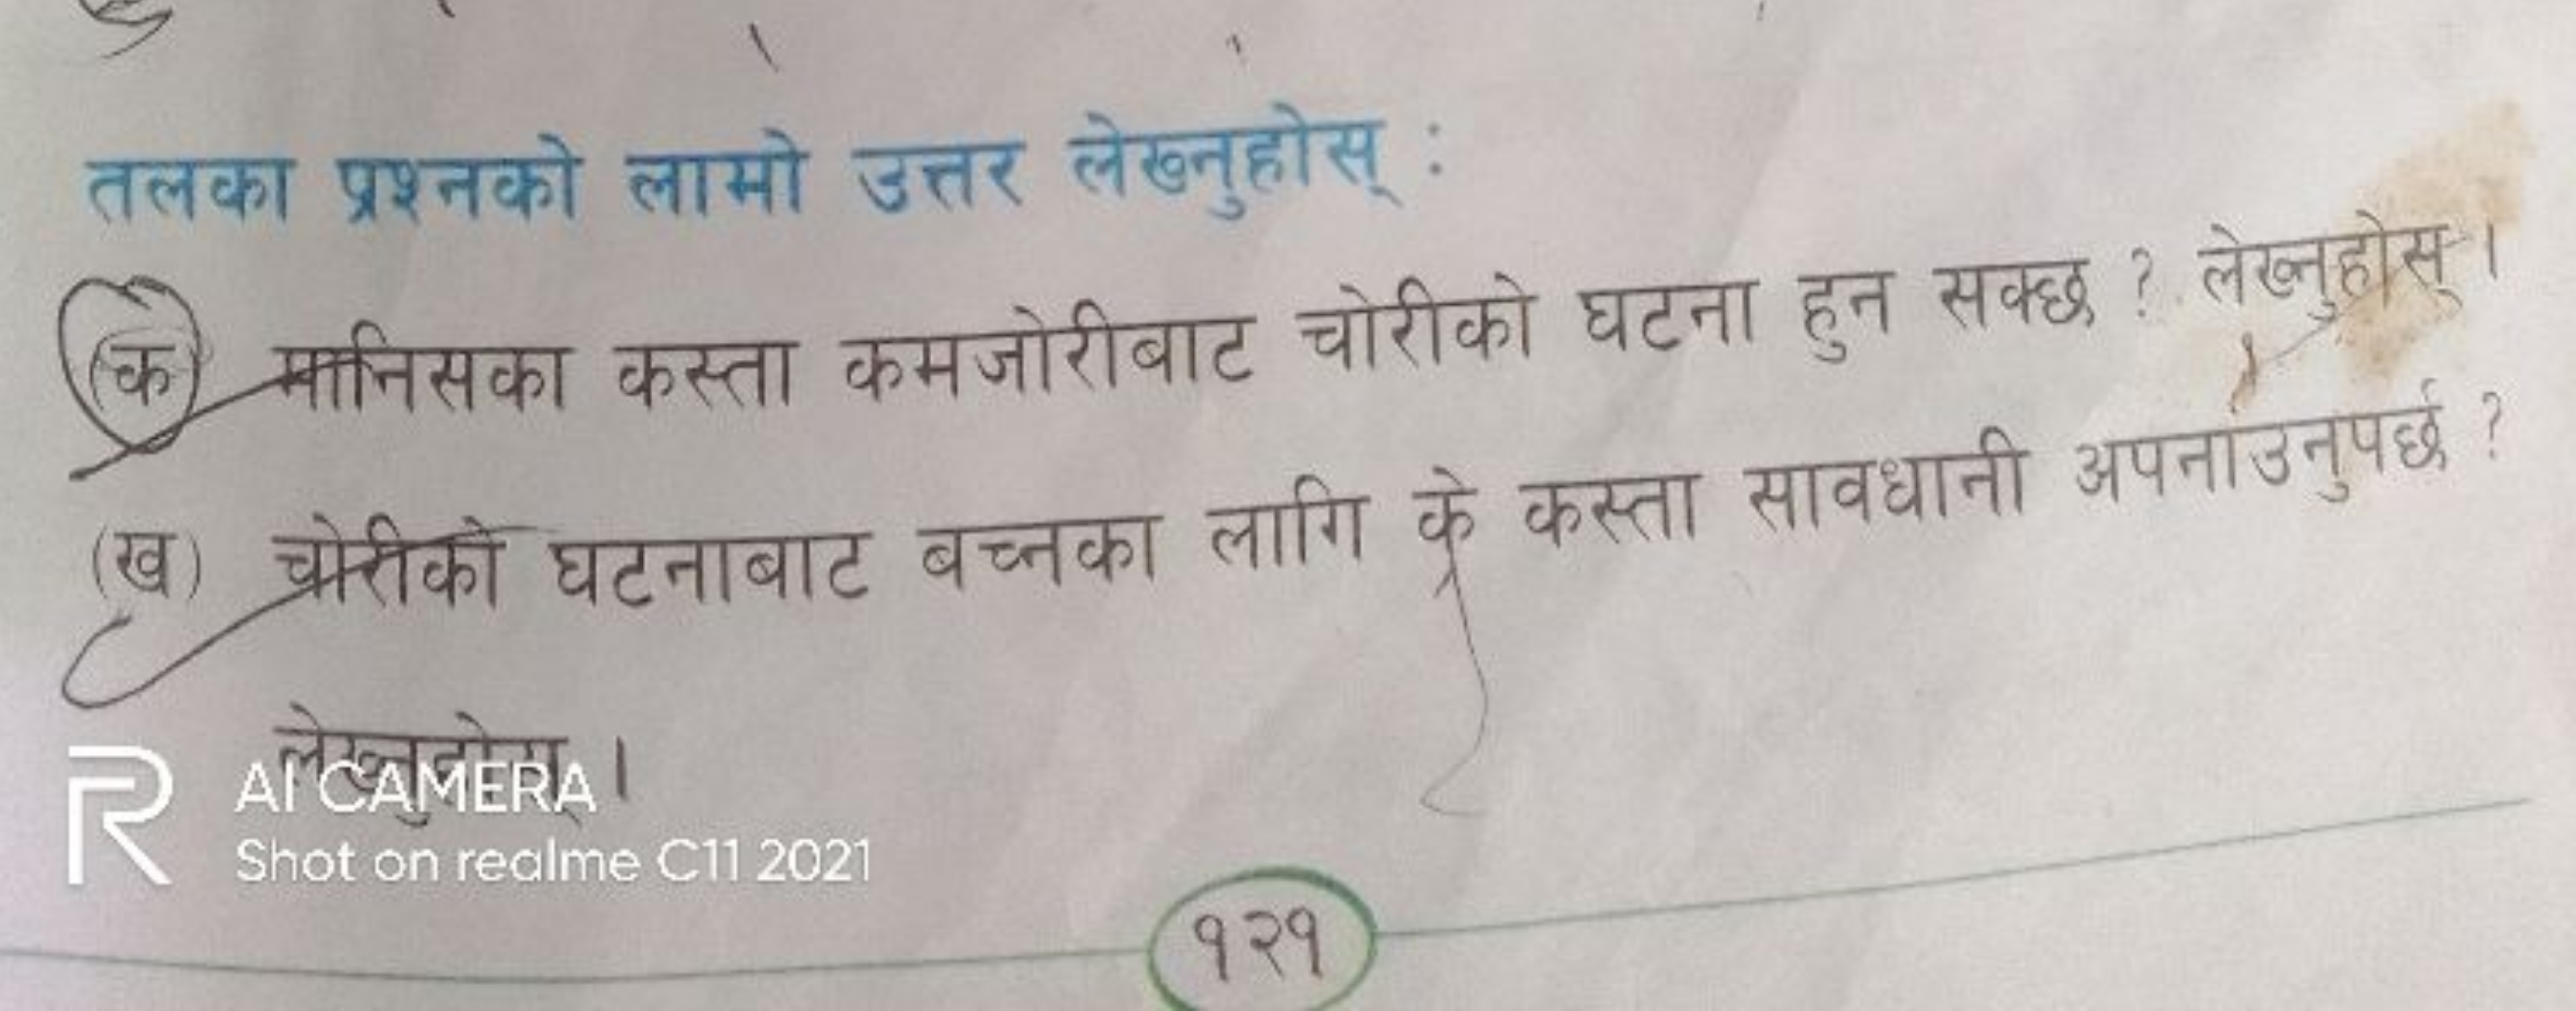 तलका प्रश्नको लामो उत्तर लेख्नुहोस् :
(क) मानिसका कस्ता कमजोरीबाट चोरीको घटना हुन सक्छ ? लेख्नुहोस् ।
(ख) चोरीको घटनाबाट बच्नका लागि के कस्ता सावधानी अपनाउनुपर्छ ?
लेख्नुहोस् ।
AI CAMERA
Shot on realme C11 2021
१२१